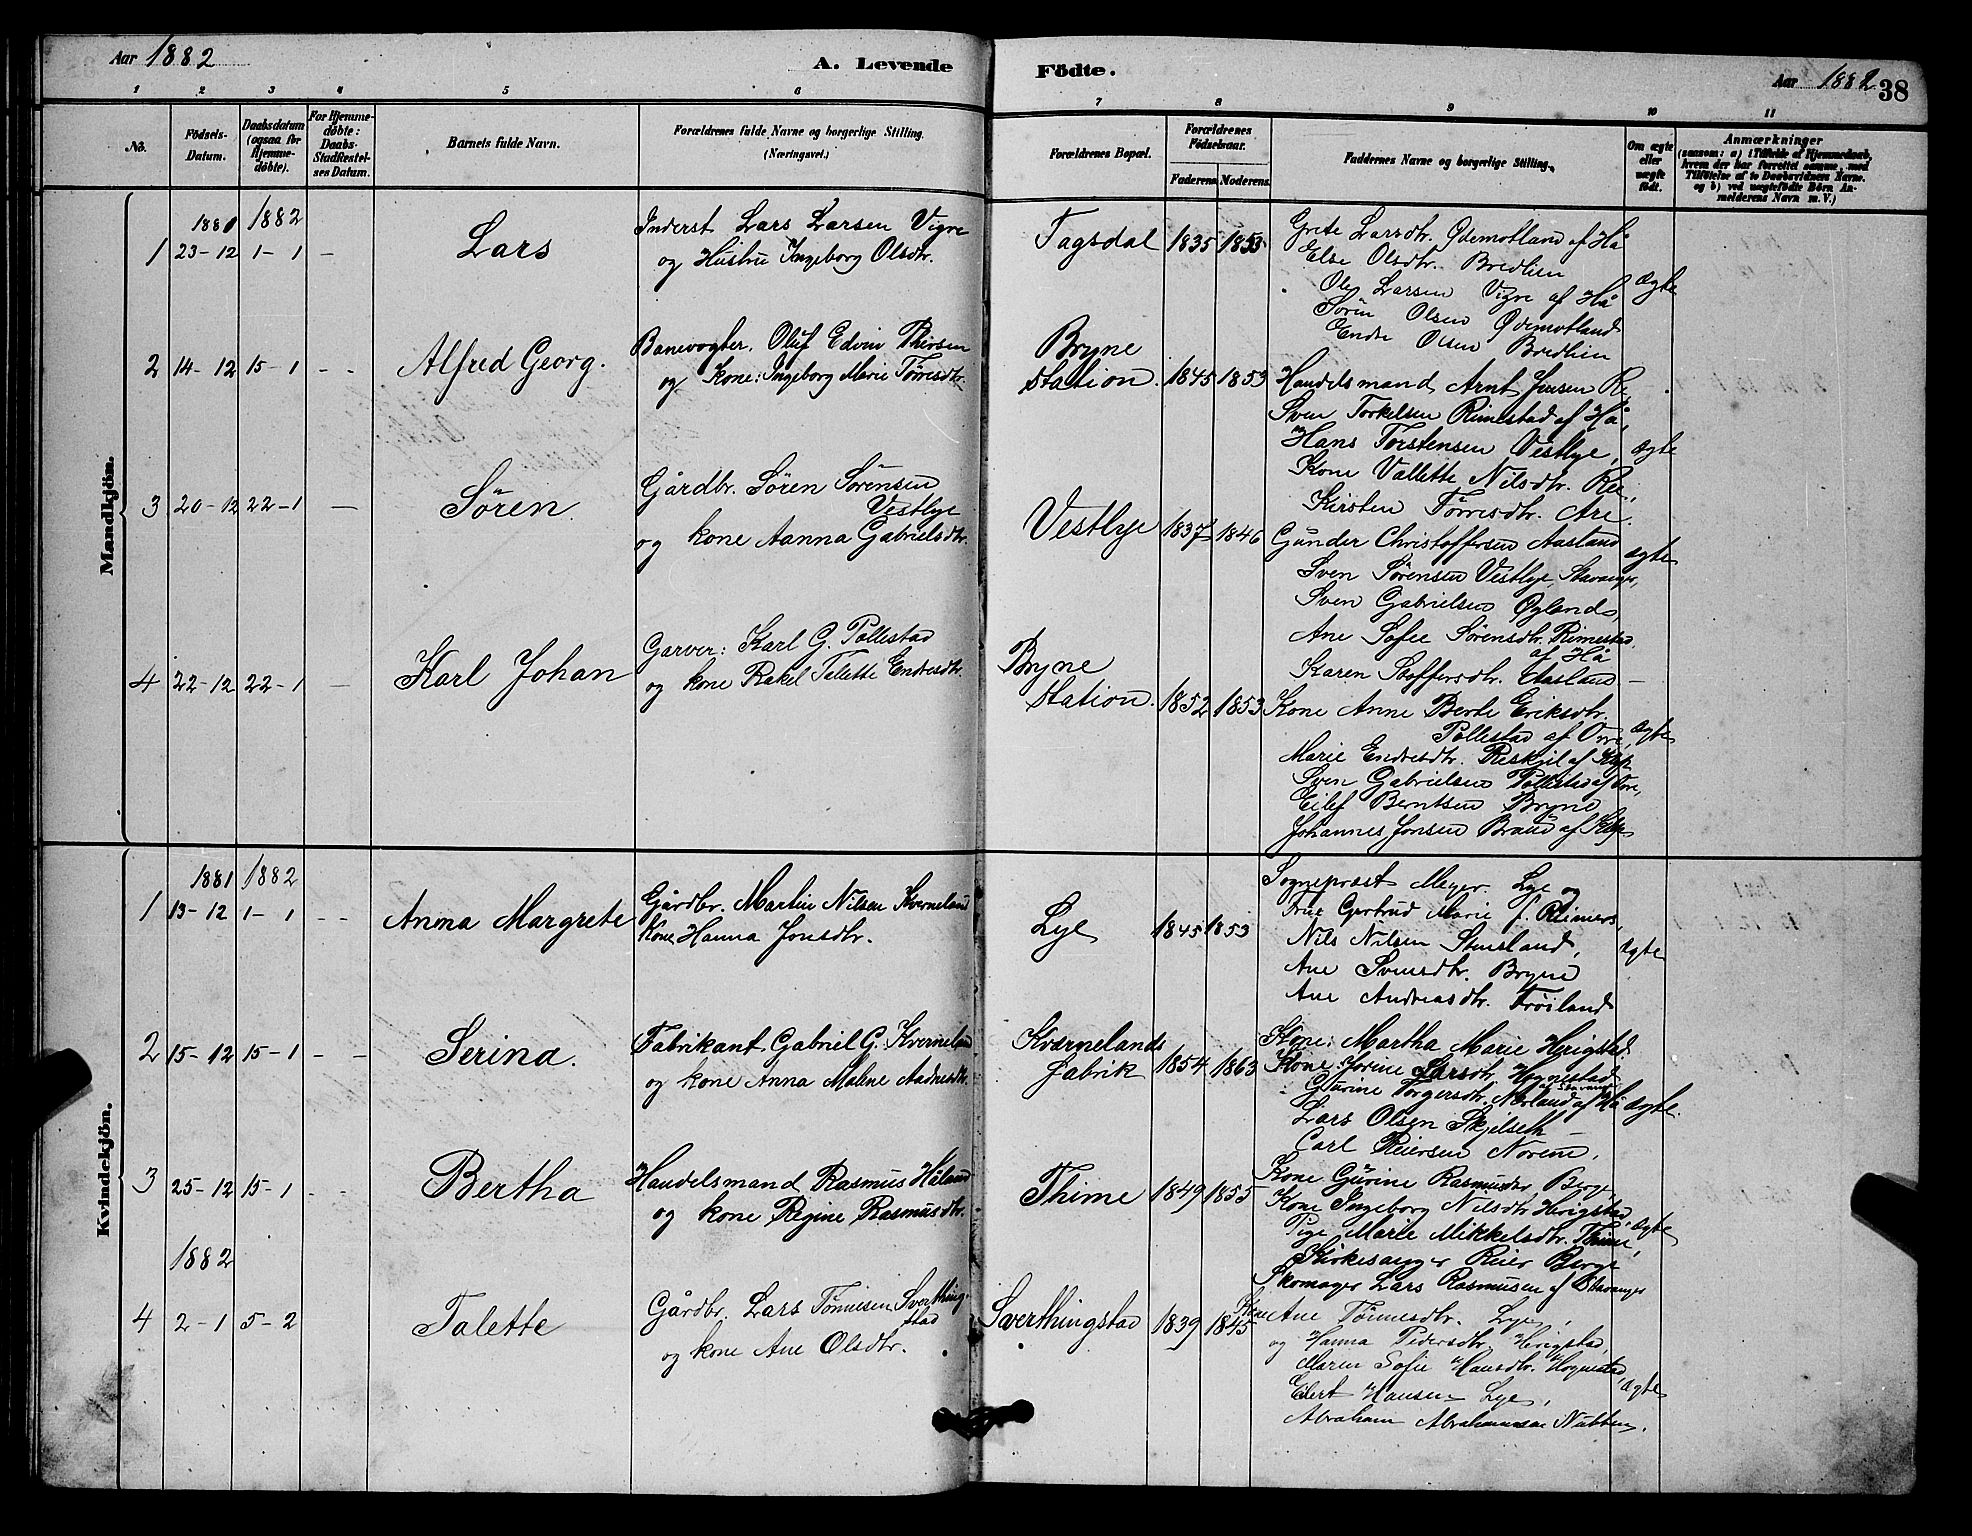 Aar 1882
A. Levende
Fødte.
Aar 1882
38
1 2 3 4 5 6 7 8 9 10 11
No.
Fødsels-
Datum.
Daabsdatum
(ogsaa for
Hjemme-
døbte).
For Hjemme-
døbte:
Daabs-
Stadfæstel-
ses Datum.
Barnets fulde Navn.
Forældrenes fulde Navne og borgerlige Stilling.
(Næringsvei.)
Forældrenes Bopæl.
Forældrenes
Fødselsaar.
Faderens. Moderens.
Faddernes Navne og borgerlige Stilling.
Om ægte
eller
uægte
født.
Anmærkninger
(saasom: a) i Tilfælde af Hjemmedaab,
hvem der har forrettet samme, med
Tilføielse af to Daabsvidners Navne.
og b) ved uægtefødte Børn An-
melderens Navn m. V.)
Mandkjön.
1881 1882
1 23-12 1-1 -
Lars
Inderst Lars Larsen Vigre
og Hustru Ingeborg Olsdtr.
Tagsdal 1835 1853
Grete Larsdtr. Ødemotland af Hå
Else Olsdtr. Bredlien
Ole Larsen Vigre af Hå
Sören Olsen Ødemotland
Endre Olsen Bredlien
ægte
2 14-12 15-1 - -
Alfred Georg.
Banevogter. Oluf Edvin Thorsen
og Kone: Ingeborg Marie Tørresdtr.
Bryne
station. 1845 1853
Handelsmand Arnt Jensen R.
Sven Torkelsen Rimestad af Hå,
Hans Torstensen Vestlye,
Kone Vallette Nilsdtr. Re,
Kirsten Tørresdtr. Are.
ægte
3 20-12 22-1 -
Søren
Gårdbr. Søren Sørensen
Vestlye
og kone Aanna Gabrielsdtr.
Vestlye 1837 1846
Gunder Christoffersen Aasland
Sven Sørensen Vestlye, Stavanger,
Sven Gabrielsen Øgland,
Ane Sofie Sørensdtr. Rimestad
af Hå
Karen Stoffersdtr. Aasland -
ægte
4 22-12 22-1 -
Karl Johan
Garver: Karl G. Pollestad
og kone Rakel Talette Endresdtr.
Bryne
station. 1852 1853
Kone Anne Berte Eriksdtr.
Pollestad af Orre,
Marie Endresdtr. af Klep
Sven Gabrielsen Pollestad af Orre,
Eilef Berntsen Bryne
Johannes Jonsen Braud af Klep
ægte
Kvindekjön.
1881 1882
1 13-12 1-1 - -
Anna Margrete
Gårdbr. Martin Nilsen Kverneland
Kone Hanna Jonsdtr.
Lye 1845 1853
Sognepræst Meyer. Lye og
Frue Gertrud Marie f. Reimers,
Nils Nilsen
Ane Svensdtr. Bryne
Ane Andreasdtr. Frøiland
ægte
2 15-12 15-1 - -
Serina.
Fabrikant Gabriel G. Kverneland
og kone Anna Maline Aadnesdtr.
Kværnelands
fabrik 1854 1863
Kone: Martha Marie Herigstad
Kone Jorine Larsdtr. Hognestad
af Stavanger
Gurine Torgersdtr. Nærland af Hå
Lars Olsen Skjelseth
Carl Reiersen Norem.
ægte.
3 25-12 15-1 - -
Bertha
Handelsmand Rasmus Håland
og kone Regine Rasmusdtr.
Thime 1849 1855
Kone Gurine Rasmusdtr Berge
Kone Ingeborg Nilsdtr Herigstad,
Pige Marie Mikkelsdtr. Thime,
Kirkesanger Reier Berge
Skomager Lars Rasmusen af Stavanger
ægte
1882
4 2-1 5-2
Talette
Gårdbr. Lars Tønnesen Sverthing-
stad
og kone Ane Olsdtr.
Sverthingstad 1839 1845
Kone Ane Tønnesdtr. Lye,
og Hanna Pedersdtr. Herigstad,
Maren Sofie Hansdtr. Hognestad,
Eilert Hansen Lye,
Abraham Abrahamsen Nubben.
ægte